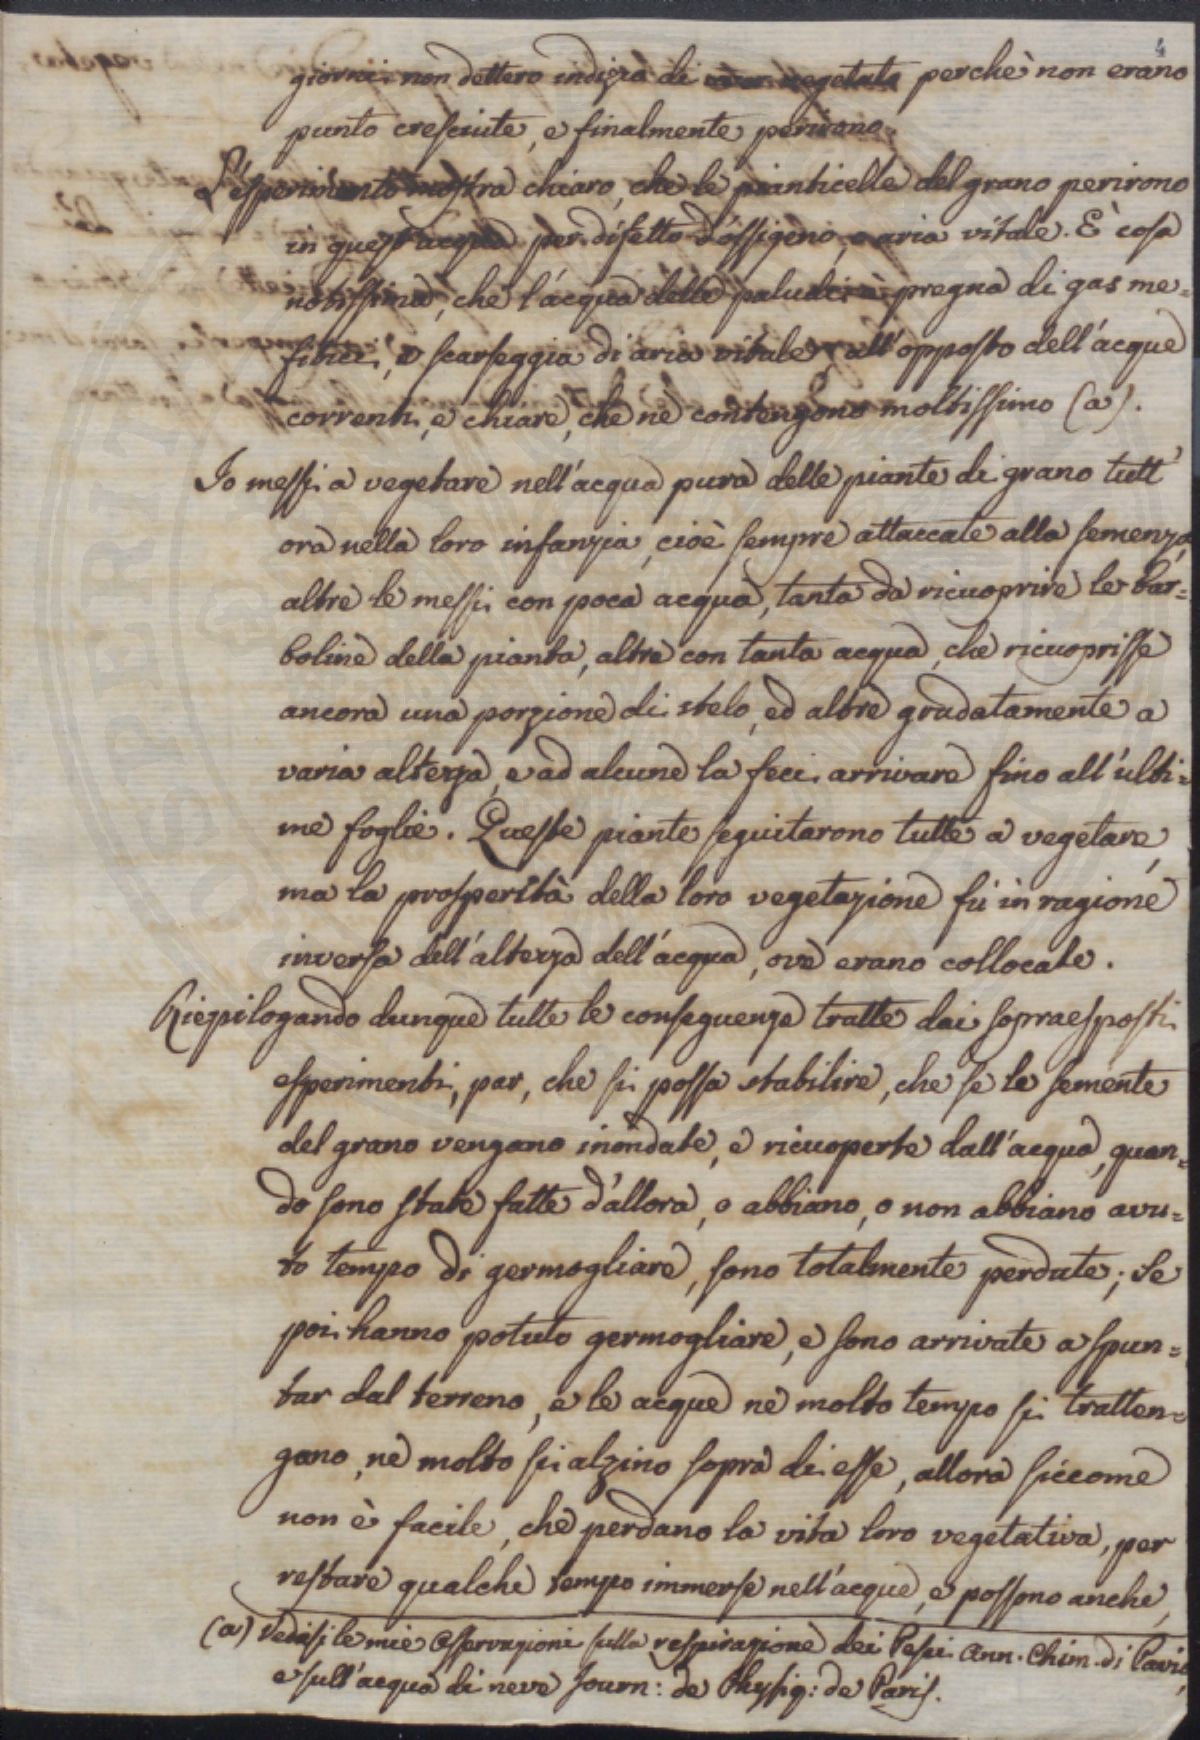 4
giorni non dettero indizia di aver vegetato perchè non erano
punto cresciute, e finalmente perirono.
L'esperimento mostra chiaro, che le pianticelle del grano perirono
in quest'acqua per difetto d'ossigeno, o aria vitale. È cosa
notissima, che l'acqua delle paludi è pregna di gas me=
fitici, e scarseggia di aria vitale, all'opposto dell'acque
correnti, e chiare, che ne contengono moltissimo (a).
Io messi a vegetare nell'acqua pura delle piante di grano tutt'
ora nella loro infanzia, cioè sempre attaccate alla semenza,
altre le messi con poca acqua, tanta da ricuoprire le bar=
boline della pianta, altre con tanta acqua, che ricuoprisse
ancora una porzione di stelo, ed altre gradatamente a
varia altezza, e ad alcune la feci arrivare fino all'ulti=
me foglie. Queste piante seguitarono tutte a vegetare,
ma la prosperità della loro vegetazione fù in ragione
inversa dell'altezza dell'acqua, ove erano collocate.
Riepilogando dunque tutte le conseguenze tratte dai sopraesposti
esperimenti, par, che si possa stabilire, che se le semente
del grano vengano inondate, e ricuoperte dall'acqua, quan=
do sono state fatte d'allora, o abbiano, o non abbiano avu=
to tempo di germogliare, sono totalmente perdute; se
poi hanno potuto germogliare, e sono arrivate a spun=
tar dal terreno, e le acque ne molto tempo si tratten=
gano, ne molto si alzino sopra di esse, allora siccome
non è facile, che perdano la vita loro vegetativa, per
restare qualche tempo immerse nell'acque, e possono anche,
(a) Vedasi le mie Osservazioni sulla respirazione dei Pesci Ann. Chim. di Pavia,
e sull'acqua di neve Journ: de Physiq: de Paris.